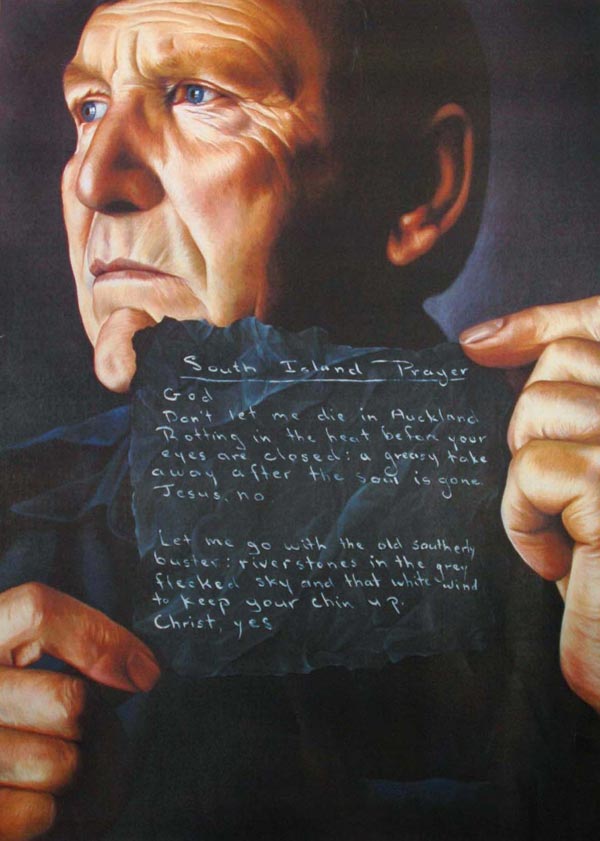 South Island Prayer
God
Don't let me die in Auckland
Rotting in the heat before your
eyes are closed: a greasy take
away after the soul is gone.
Jesus, no
Let me go with the old southerly
buster: riverstones in the grey
flecked sky and that white wind
to keep your chin up.
Christ, yes